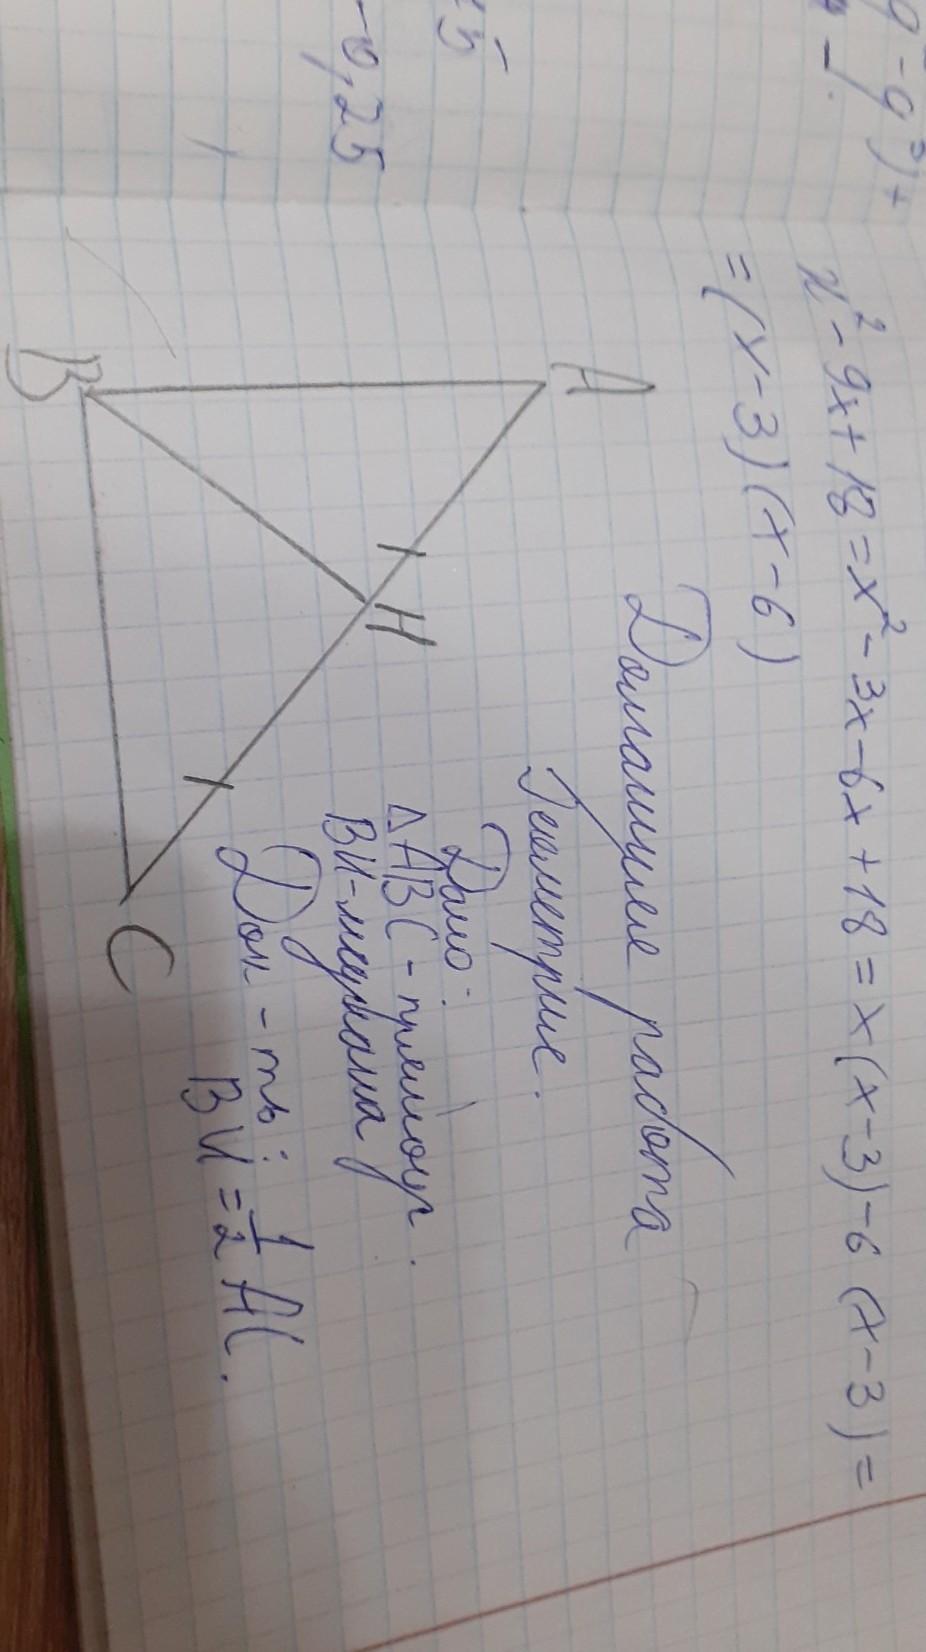 g² - g³) +
15
-0,25
x² - 9x + 18 = x² - 3x - 6x + 18 = x(x-3) - 6(x-3) =
= (x-3)(x-6)
Домашнее работа
Геометрие.
A
H
B
C
Дано:
△ABC - прямоуг.
BH - медиана
Док-ть:
BH = 1/2 AC.